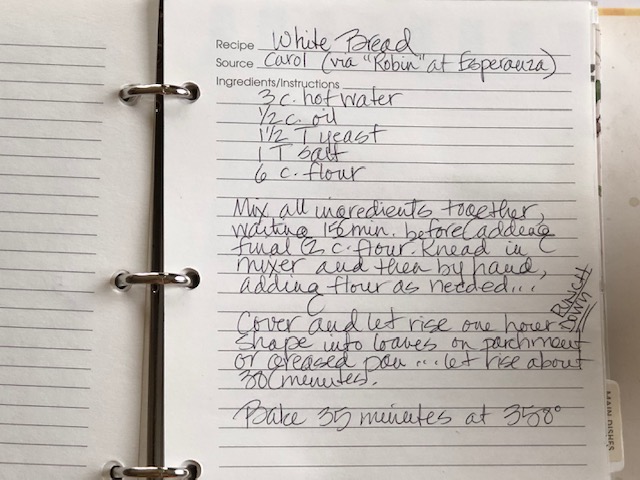 Recipe White Bread
Source Carol (via "Robin" at Esperanza)
Ingredients/Instructions
3 c. hot water
1/2 c. oil
1 1/2 T yeast
1 T salt
6 c. flour
Mix all ingredients together,
waiting 15 min. before adding
final 2 c. flour. Knead in
mixer and then by hand,
adding flour as needed...
Cover and let rise one hour
PUNCH DOWN
Shape into loaves on parchment
or greased pan ... let rise about
30 minutes.
Bake 35 minutes at 350°
MAIN DISHES